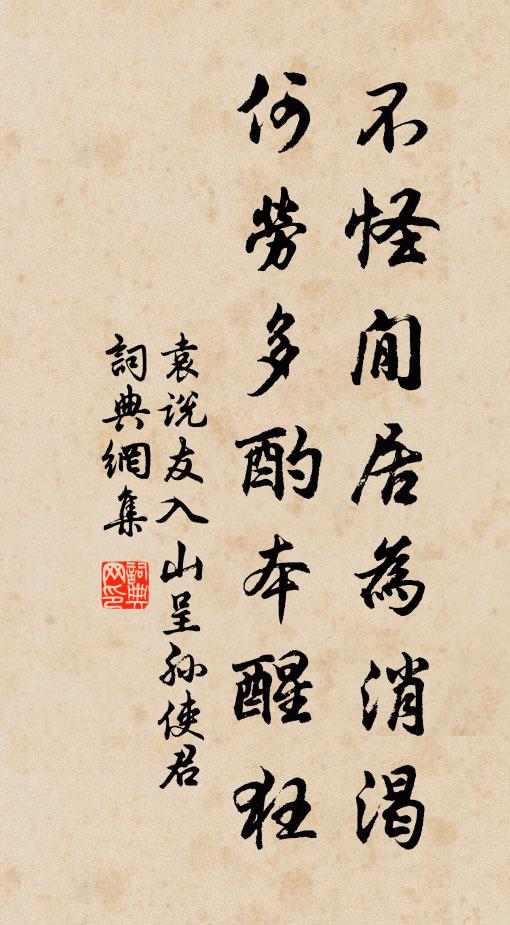 不怪閒居為消渴
何勞多酌本醒狂
袁说友入山呈孙使君
詞典網集
詞典网印